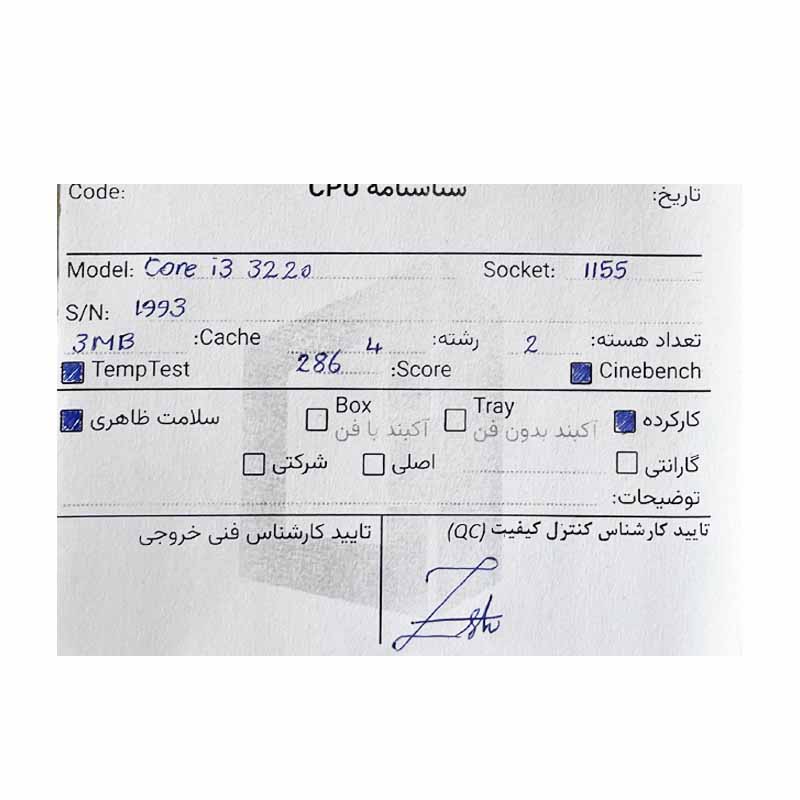 Code: شناسنامه CPU تاریخ:
Model: Core i3 3220 Socket: 1155
S/N: 1993
تعداد هسته: 2 رشته: 4 Cache: 3MB
Cinebench Score: 286 TempTest
کارکرده Tray آکبند بدون فن Box آکبند با فن سلامت ظاهری
گارانتی اصلی شرکتی
توضیحات:
تایید کارشناس کنترل کیفیت (QC) تایید کارشناس فنی خروجی